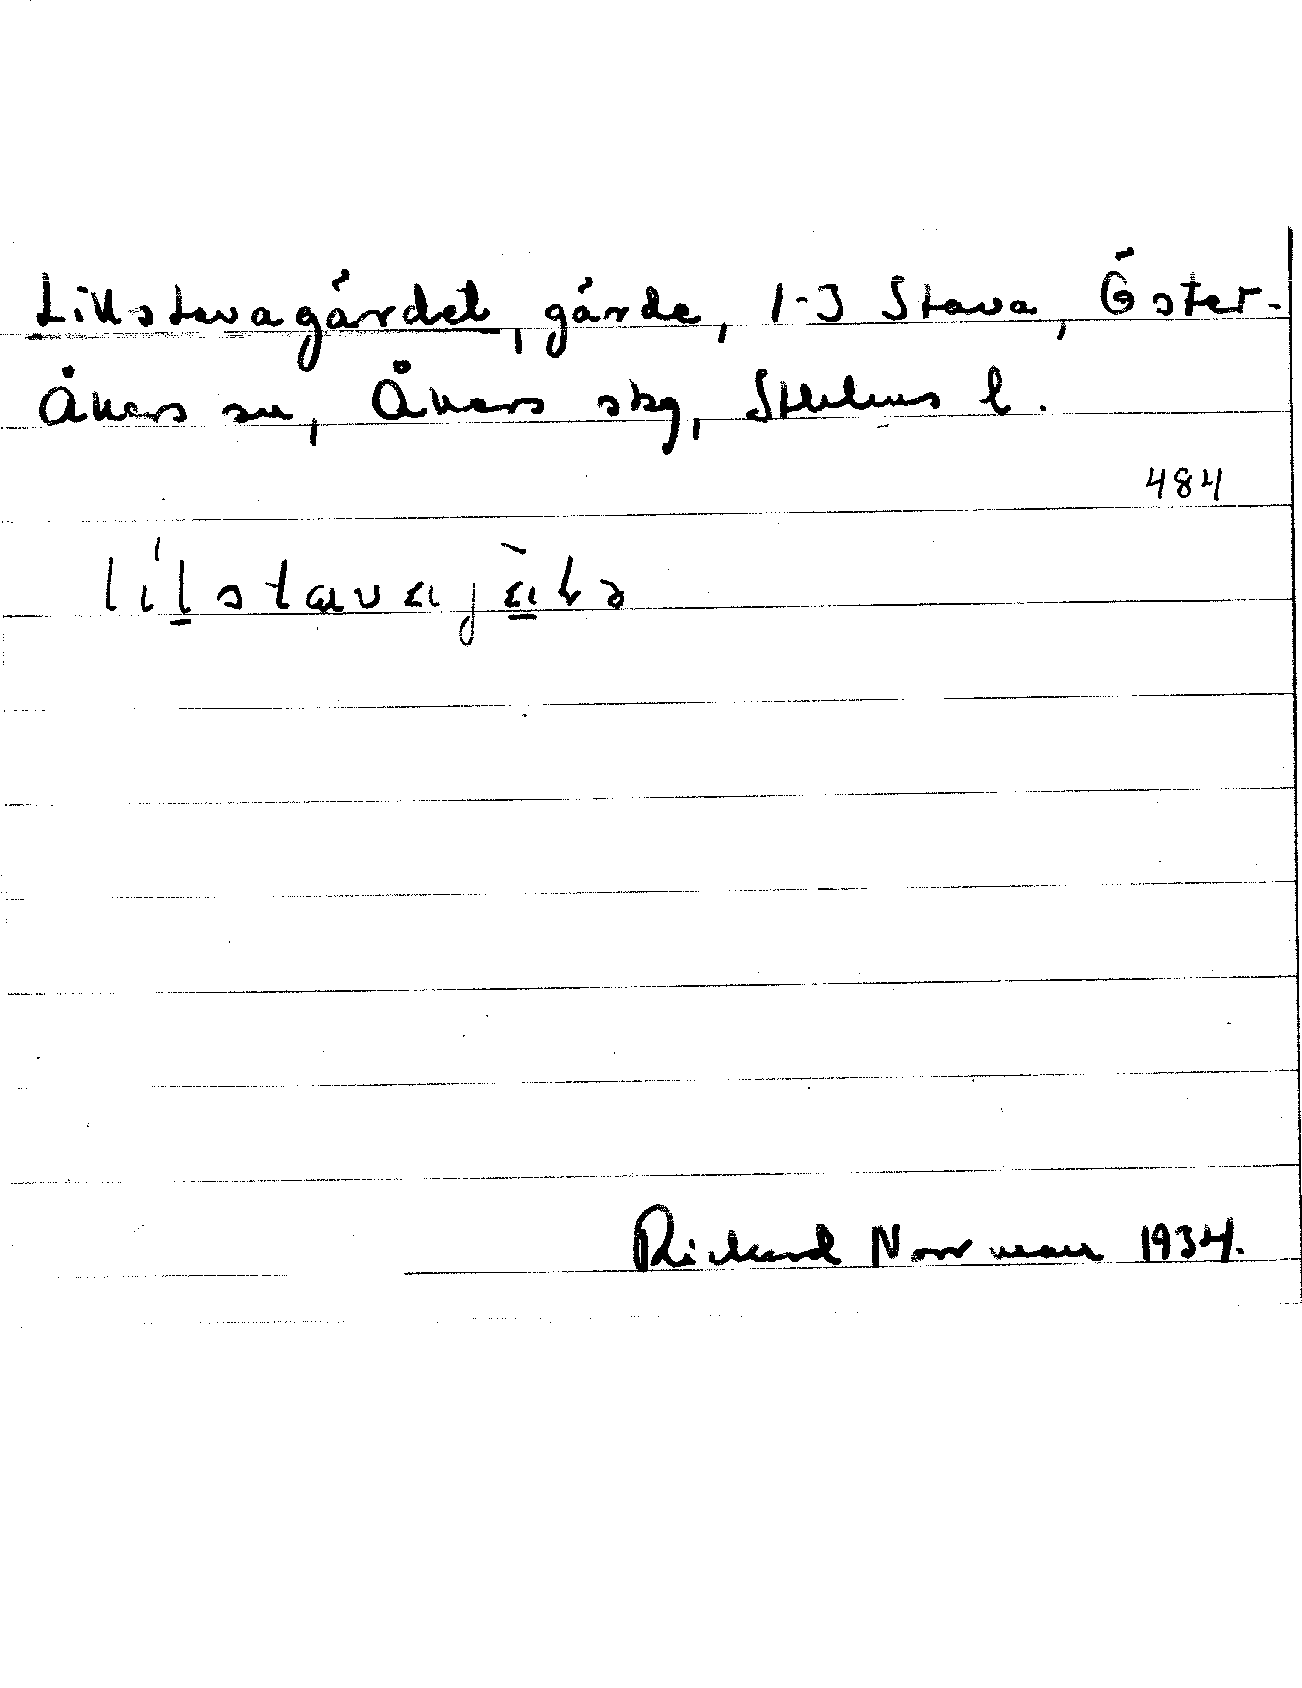 Lillstavagärdet, gärde, 1-3 Stava, Öster-
Åkers sn, Åkers skg, Sthlms l.
484
Rickard Norrman 1934.